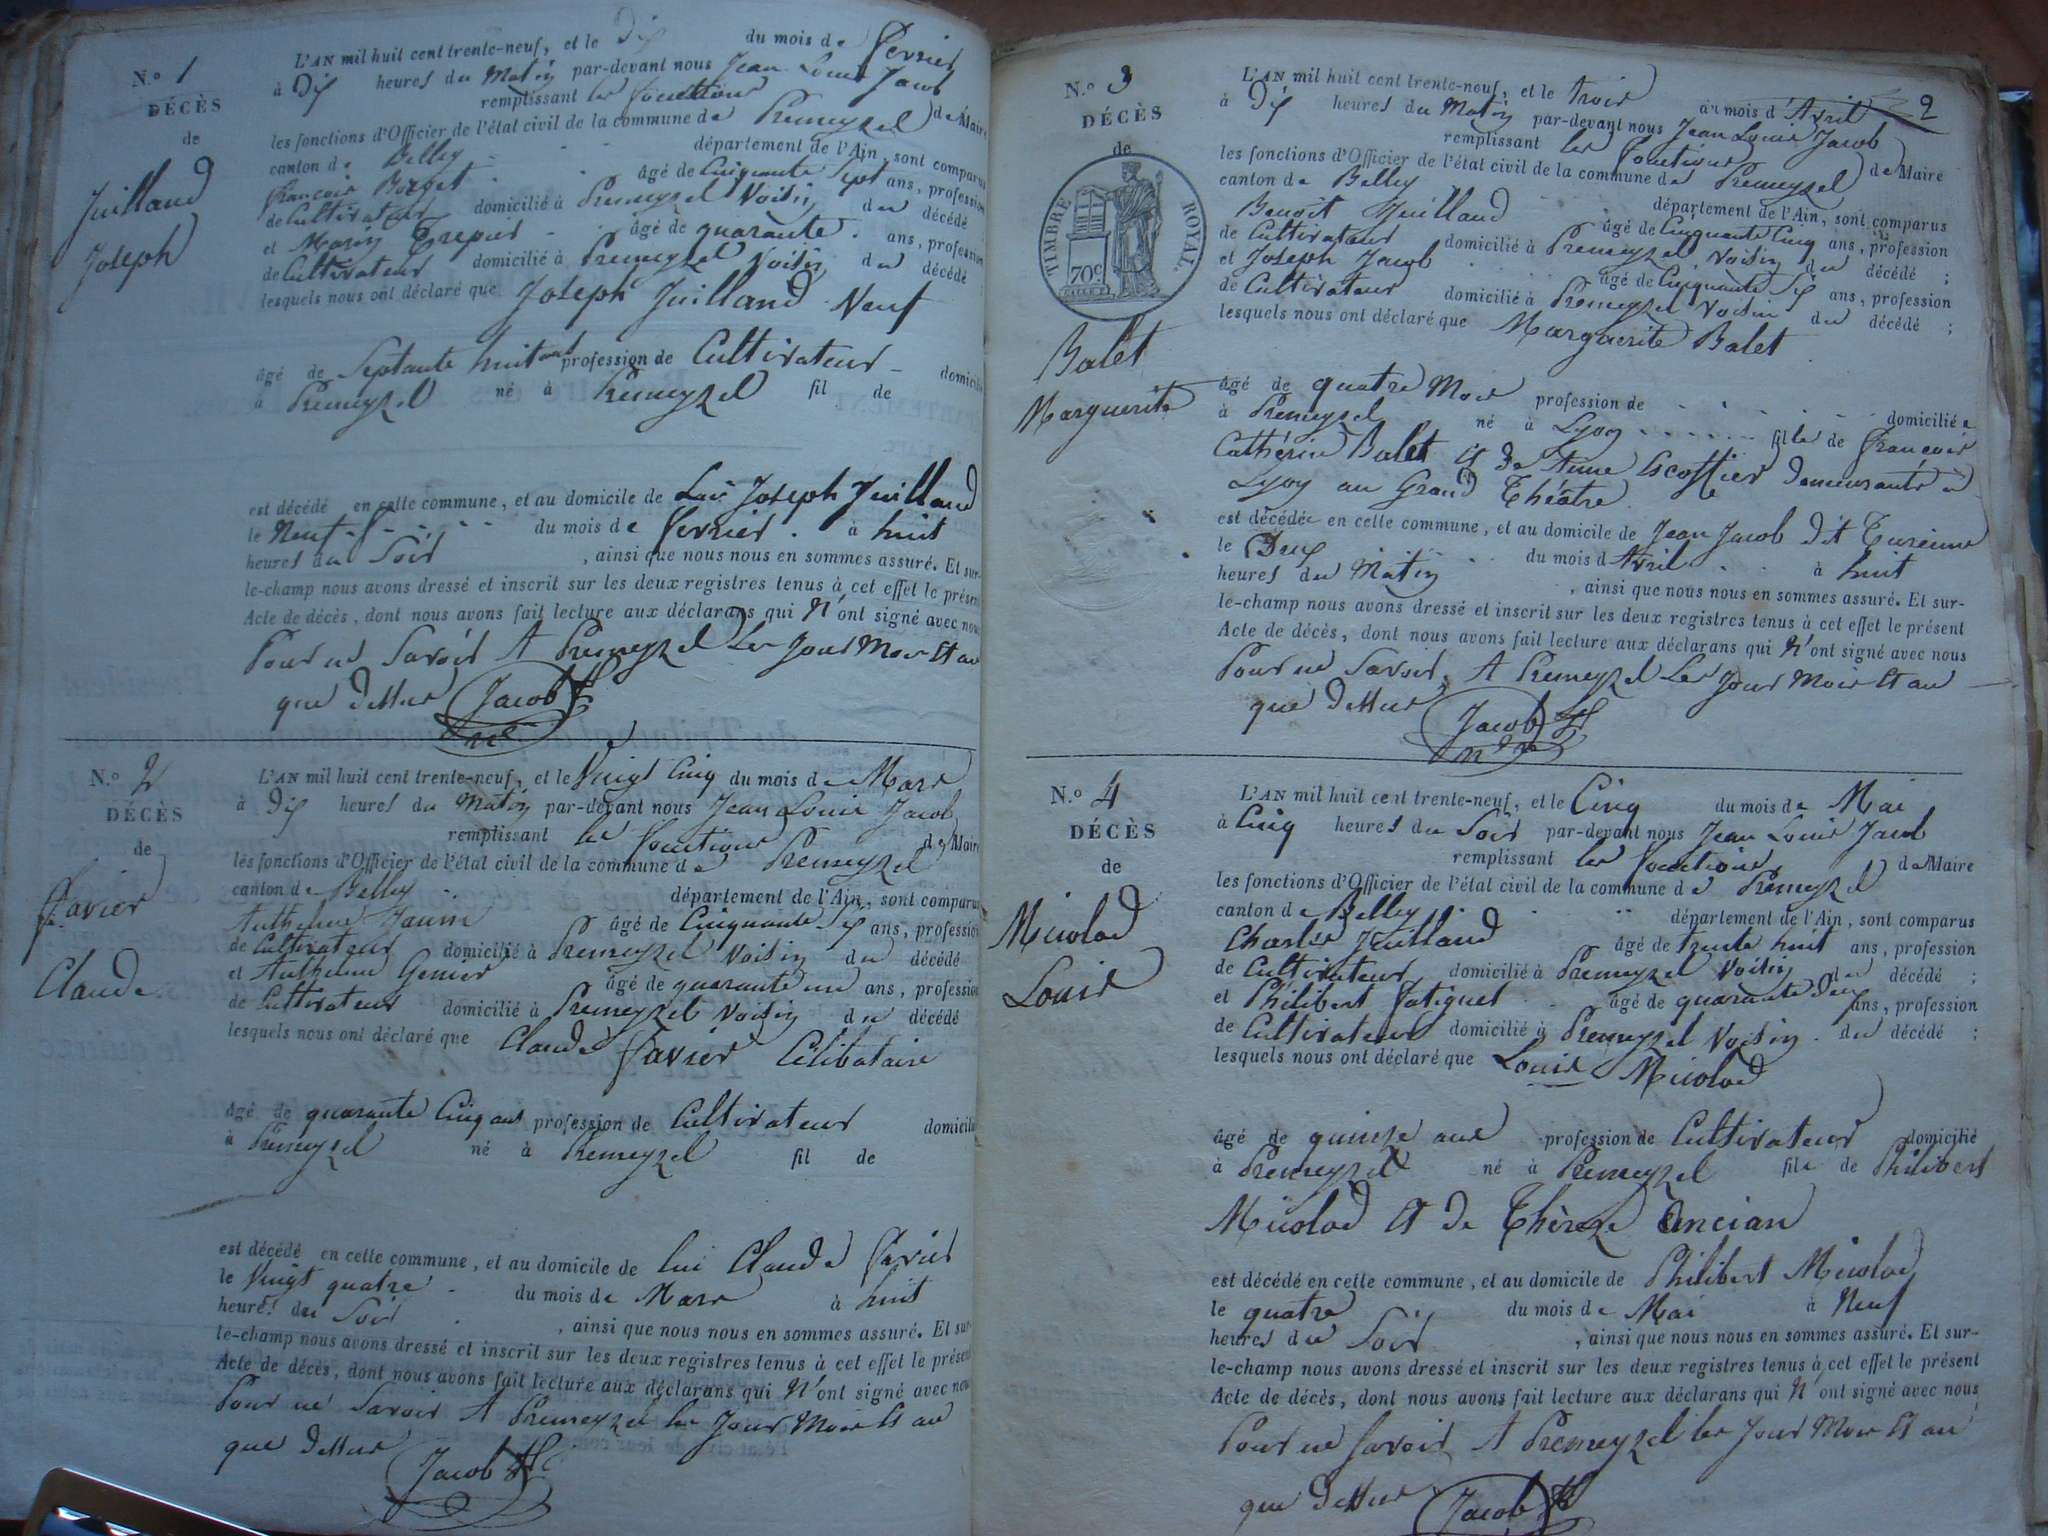 N.o 1
DÉCÈS
de
Juilland
Joseph
L'AN mil huit cent trente-neuf, et le Dix du mois de fevrier
à Dix heures du Matin par-devant nous Jean Louis Jacob
remplissant les fonctions de Maire
les fonctions d'Officier de l'état civil de la commune de Premeyzel
canton de Belley département de l'Ain, sont comparus
françois Borget âgé de Cinquante Sept ans, profession
de Cultivateur domicilié à Premeyzel Voisin du décédé
et Marin Trepier âgé de quarante ans, profession
de Cultivateur domicilié à Premeyzel Voisin du décédé ;
lesquels nous ont déclaré que Joseph Juilland Veuf
âgé de Septante huit ans profession de Cultivateur domicilié
à Premeyzel né à Premeyzel fil de
est décédé en cette commune, et au domicile de Lui Joseph Juilland
le Neuf du mois de fevrier à huit
heures du Soir , ainsi que nous nous en sommes assuré. Et sur-
le-champ nous avons dressé et inscrit sur les deux registres tenus à cet effet le présent
Acte de décès, dont nous avons fait lecture aux déclarans qui N'ont signé avec nous
Pour ne Savoir A Premeyzel Les Jour Mois Et an
que Dessus Jacob
N.o 2
DÉCÈS
de
Favier
Claude
L'AN mil huit cent trente-neuf, et le Vingt Cinq du mois de Mars
à Dix heures du Matin par-devant nous Jean Louis Jacob
remplissant les fonctions de Maire
les fonctions d'Officier de l'état civil de la commune de Premeyzel
canton de Belley département de l'Ain, sont comparus
Anthelme Janin âgé de Cinquante Six ans, profession
de Cultivateur domicilié à Premeyzel Voisin du décédé
et Anthelme Genier âgé de quarante un ans, profession
de Cultivateur domicilié à Premeyzel Voisin du décédé
lesquels nous ont déclaré que Claude Favier Célibataire
âgé de quarante Cinq ans profession de Cultivateur domicilié
à Premeyzel né à Premeyzel fil de
est décédé en cette commune, et au domicile de lui Claude Favier
le Vingt quatre du mois de Mars à huit
heures du Soir , ainsi que nous nous en sommes assuré. Et sur-
le-champ nous avons dressé et inscrit sur les deux registres tenus à cet effet le présent
Acte de décès, dont nous avons fait lecture aux déclarans qui N'ont signé avec nous
Pour ne Savoir A Premeyzel les Jour Mois Et an
que Dessus Jacob
2
N.o 3
DÉCÈS
de
TIMBRE ROYAL.
70c
Balet
Marguerite
L'AN mil huit cent trente-neuf, et le trois du mois d'Avril
à Dix heures du Matin par-devant nous Jean Louis Jacob
remplissant les fonctions de Maire
les fonctions d'Officier de l'état civil de la commune de Premeyzel
canton de Belley département de l'Ain, sont comparus
Benoît Juilland âgé de Cinquante Cinq ans, profession
de Cultivateur domicilié à Premeyzel Voisin du décédé ;
et Joseph Jacob âgé de Cinquante Six ans, profession
de Cultivateur domicilié à Premeyzel Voisin du décédé ;
lesquels nous ont déclaré que Marguerite Balet
âgé de quatre Mois profession de domiciliée
à Premeyzel né à Lyon fille de françois
Cathérin Balet Et de Anne Escoffier demeurants à
Lyon au Grand Théâtre
est décédée en cette commune, et au domicile de Jean Jacob dit Turenne
le Deux du mois d'Avril à huit
heures du Matin , ainsi que nous nous en sommes assuré. Et sur-
le-champ nous avons dressé et inscrit sur les deux registres tenus à cet effet le présent
Acte de décès, dont nous avons fait lecture aux déclarans qui N'ont signé avec nous
Pour ne Savoir, A Premeyzel Les Jour Mois Et an
que Dessus Jacob
N.o 4
DÉCÈS
de
Micolod
Louis
L'AN mil huit cent trente-neuf, et le Cinq du mois de Mai
à Cinq heures du Soir par-devant nous Jean Louis Jacob
remplissant les fonctions de Maire
les fonctions d'Officier de l'état civil de la commune de Premeyzel
canton de Belley département de l'Ain, sont comparus
Charles Juilland âgé de trente huit ans, profession
de Cultivateur domicilié à Premeyzel Voisin du décédé ;
et Philibert Fatiguet âgé de quarante Deux ans, profession
de Cultivateur domicilié à Premeyzel Voisin du décédé ;
lesquels nous ont déclaré que Louis Micolod
âgé de quinze ans profession de Cultivateur domicilié
à Premeyzel né à Premeyzel fils de Philibert
Micolod Et de Thèreze Ancian
est décédé en cette commune, et au domicile de Philibert Micolod
le quatre du mois de Mai à Neuf
heures du Soir , ainsi que nous nous en sommes assuré. Et sur-
le-champ nous avons dressé et inscrit sur les deux registres tenus à cet effet le présent
Acte de décès, dont nous avons fait lecture aux déclarans qui N'ont signé avec nous
Pour ne Savoir A Premeyzel les Jour Mois Et an
que Dessus Jacob